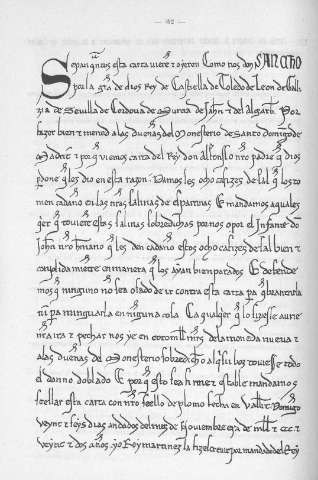 — 162 —
Sepan quãtos esta carta viere ꞇ oyeren Como nos don SANCHO
por la gr̃a de dios Rey de Castiella de Toledo de Leon de Galli
zia de Seuilla de Cordoua de Murcia de Jahñ ꞇ del algarbe. Por
fazer bien ꞇ merced a las dueñas del Monesterio de Santo Domingo de
Madrit ꞇ por q̃ viemos carta del Rey don alfonsso nr̃o padre q̃ dios
pdone q̃ les dio en esta razon. Damos les ocho cafizes de sal q̃ los to
men cadaño en las nr̃as salinas de espartinas. E mandamos a quales
q̃er q̃ touieren estas salinas sobredichas por nos o por el Infante don
Johñ nr̃o hm̃ano q̃ les den cadaño estos ocho cafizes de sal bien ꞇ
conplida miente en manera q̃ los ayan bien parados. E defende
mos q̃ ninguno nõ sea osado de ir contra esta carta pa q̃brantarla
nĩ pa minguarla en ninguna cosa. Ca qual quier q̃ lo fiziesse aurie
nr̃a ira ꞇ pechar nos ye en coto mill mr̃s de la moneda nueua ꞇ
a las dueñas del Monesterio sobredicho o a q̃ su boz touiesse todo
el danno doblado E por q̃ esto sea firme ꞇ estable mandamos
seellar esta carta con nr̃o seello de plomo fecha en Vallit Domingo
veynt ꞇ seys dias andados del mes de Nouiembre era de mill ꞇ ccc. ꞇ
veynt ꞇ dos años. yo Roy martinez la fiz escreuir por mandado del Rey